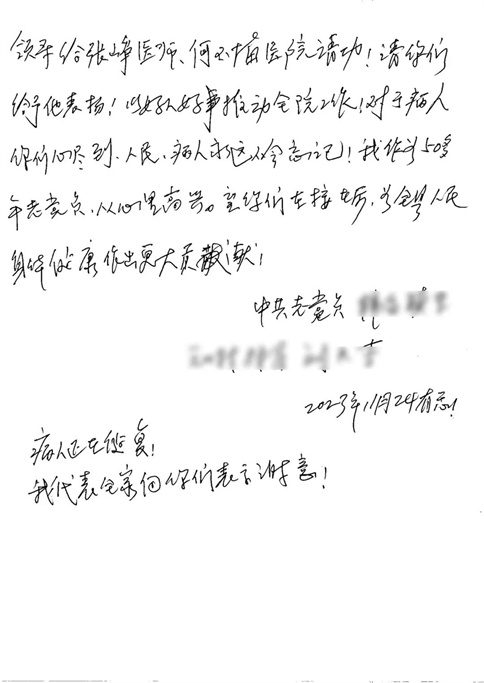 领导给张峰医师、何不植医院请功！请你们
给予他表扬！以好人好事推动全院工作！对于病人
你们心尽到、人民、病人永远不会忘记！我作为50多
年老党员、从心里高兴。望你们在接再厉，为全县人民
身体健康作出更大贡献！
中共老党员
2023年11月24日
病人正在恢复！
我代表全家向你们表示谢意！